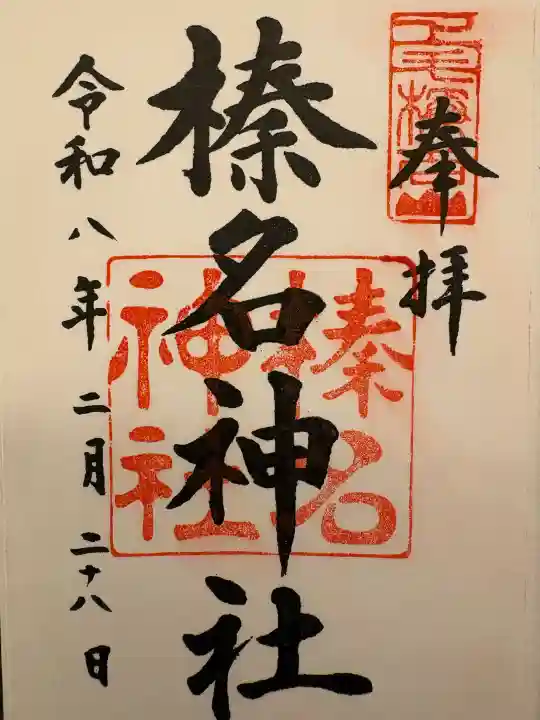 奉拝
榛名神社
令和八年二月二十八日
榛名
神社